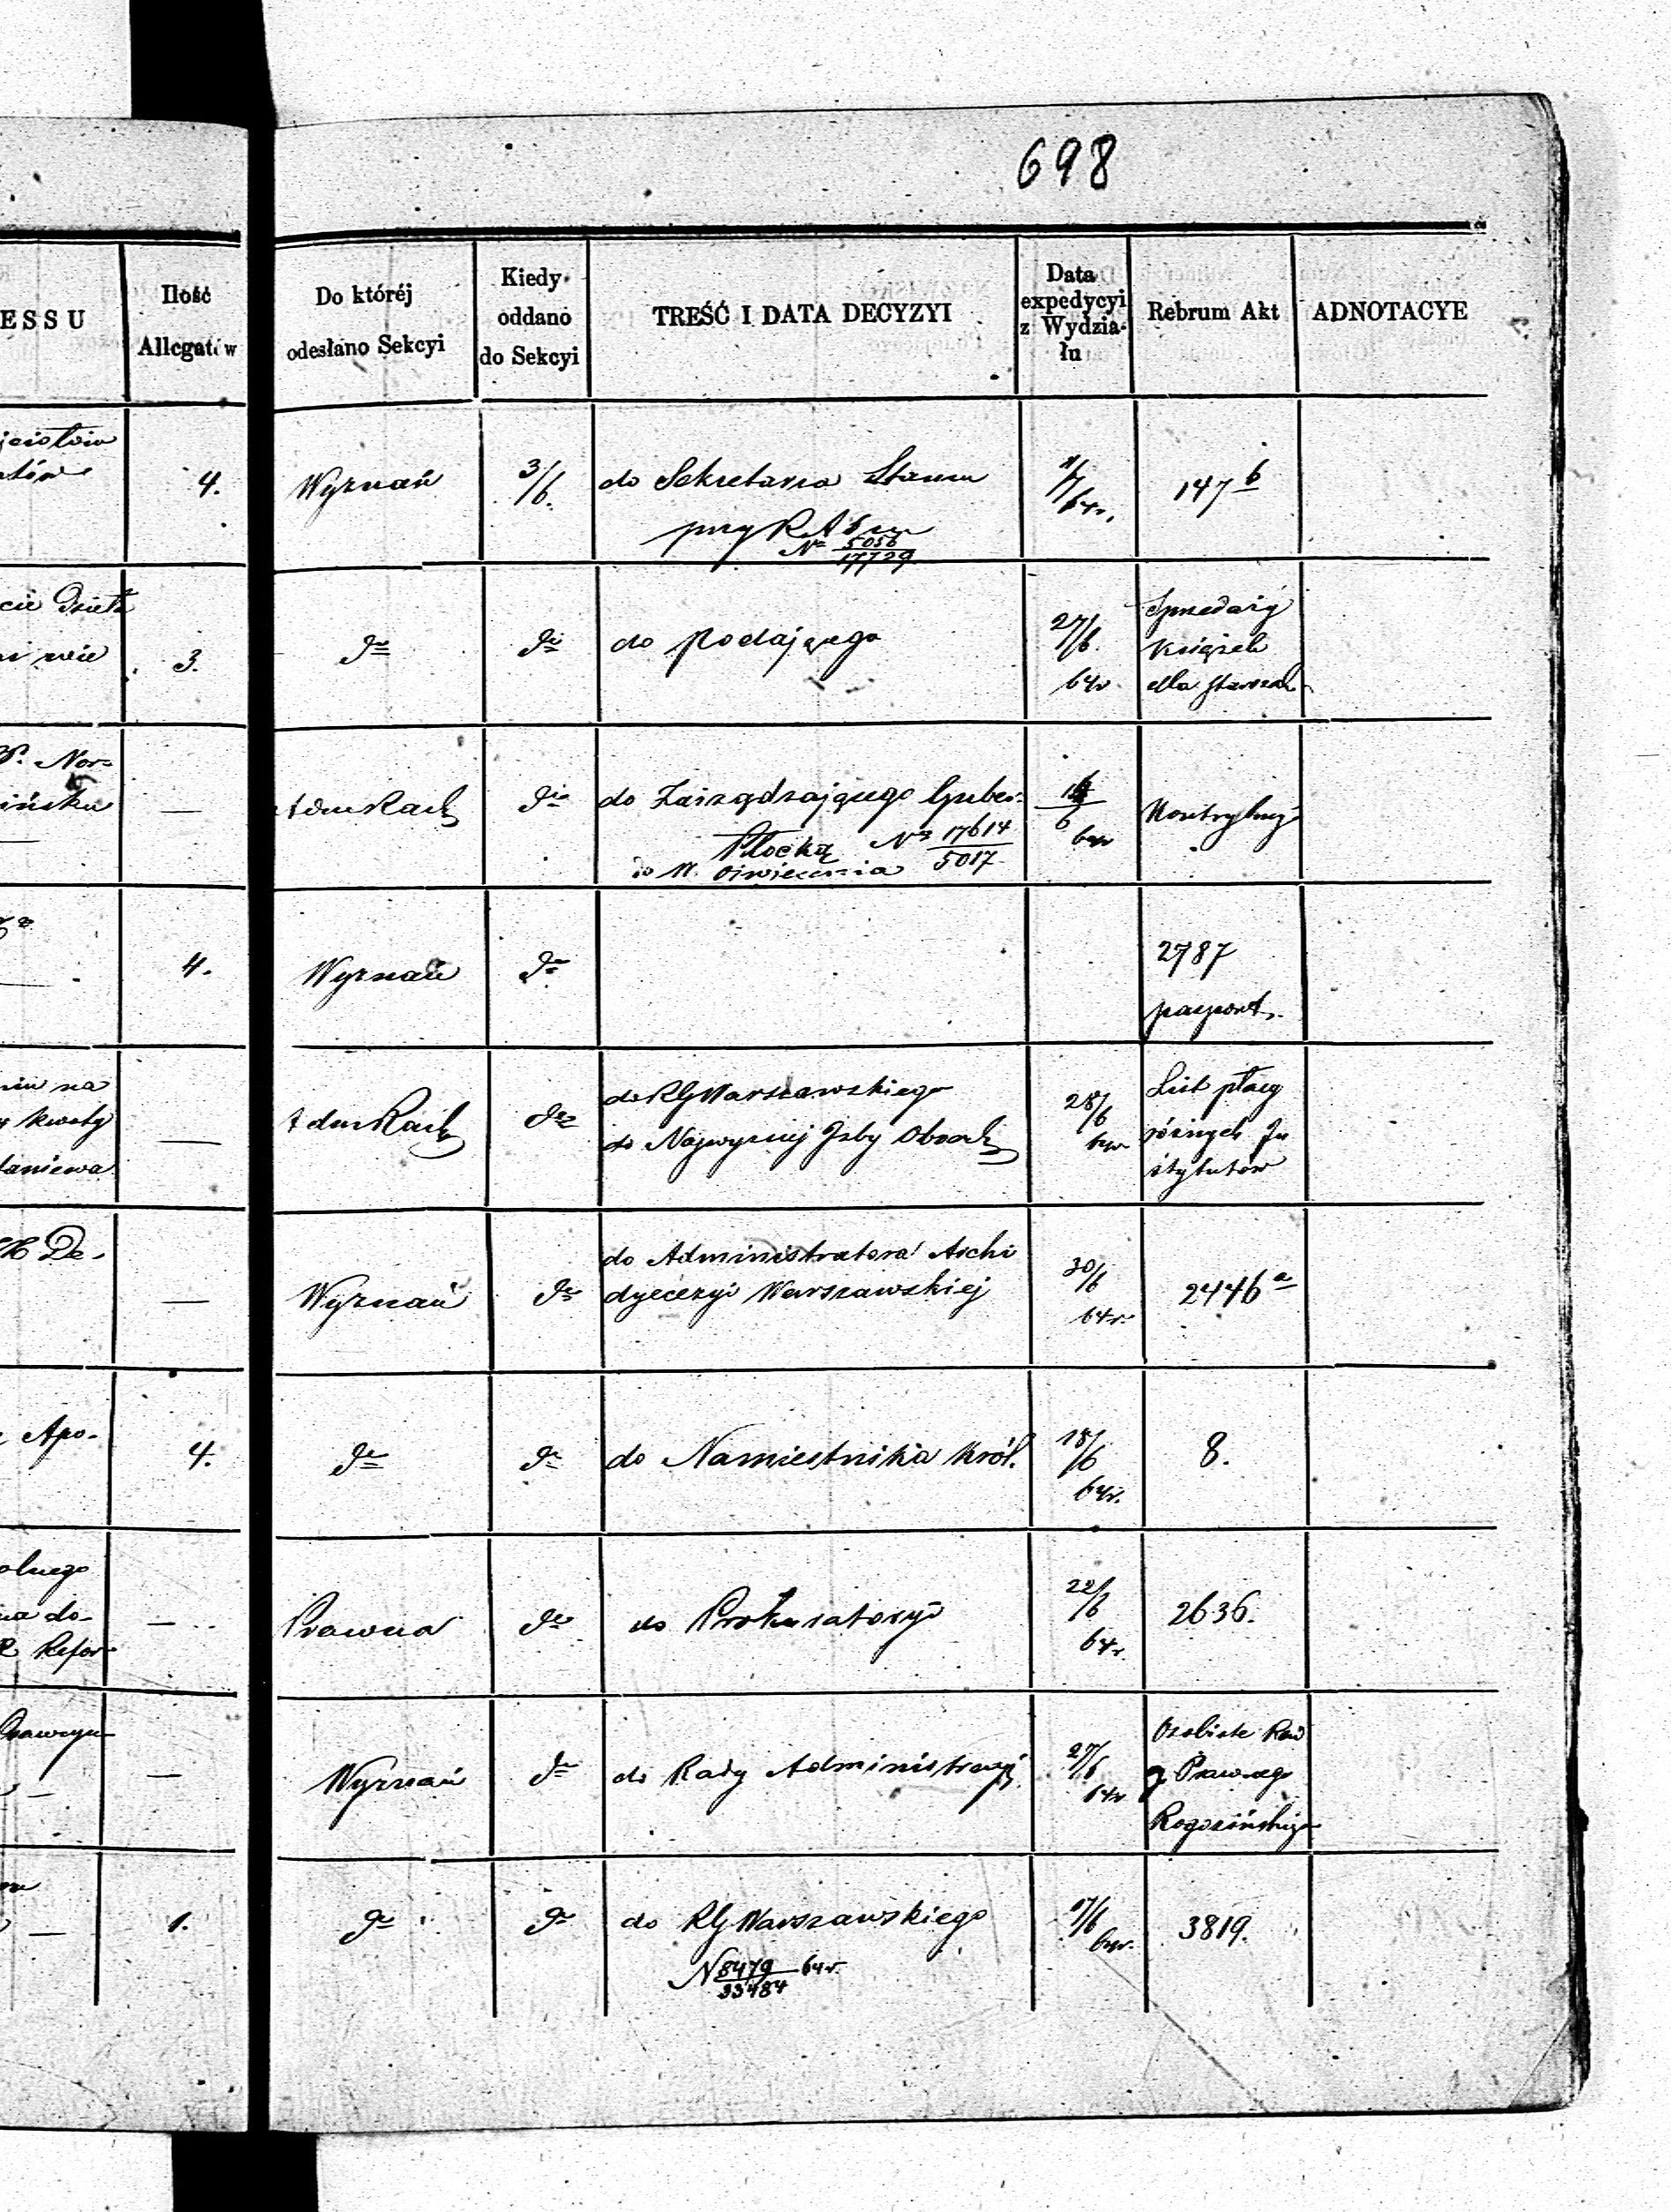 698
ESSU
Ilość
Allegatów
Do któréj
odesłano Sekcyi
Kiedy
oddano
do Sekcyi
TREŚĆ I DATA DECYZYI
Data
expedycyi
z Wydzia-
łu
Rebrum Akt
ADNOTACYE
4.
Wyznań
3/6.
do Sekretarza Stanu
przy R A
№ 5056
17729
64r.
147 b
3.
do
do
do podającego
27/6.
64r
Sprzedaży
książek
dla
Nor=
ińsku
—
do
do Zarządzającego Guber.
Płocką № 17614
5017
do N. Oświecenia
6
64r
4.
Wyznań
do
2787
paszport.
na
kwotę
—
do
do RG Warszawskiego
do Najwyższej Izby Obrach
28/6
64r
List płacy
różnych In
stytutów
De-
—
Wyznań
do
do Administratora Archi
dyecezyi Warszawskiej
30/6
64r.
2446 a
Apo-
4.
do
do
do Namiestnika Król.
18/6
64r.
8.
olnego
na do-
Refor-
—
Prawna
do
do Prokuratoryi
22/6
64r.
2636.
—
Wyznań
do
do Rady Administracyj.
27/6
64r
Osobiste
Prawnego
Rogozińskiego
1.
do
do
do RG Warszawskiego
N 8479 64r.
33484
17/6
64r.
3819.